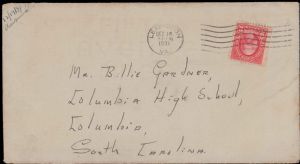 LEXINGTON
DEC 14
1931
VA.
Mr. Billie Gardner,
Columbia High School,
Columbia,
South Carolina.